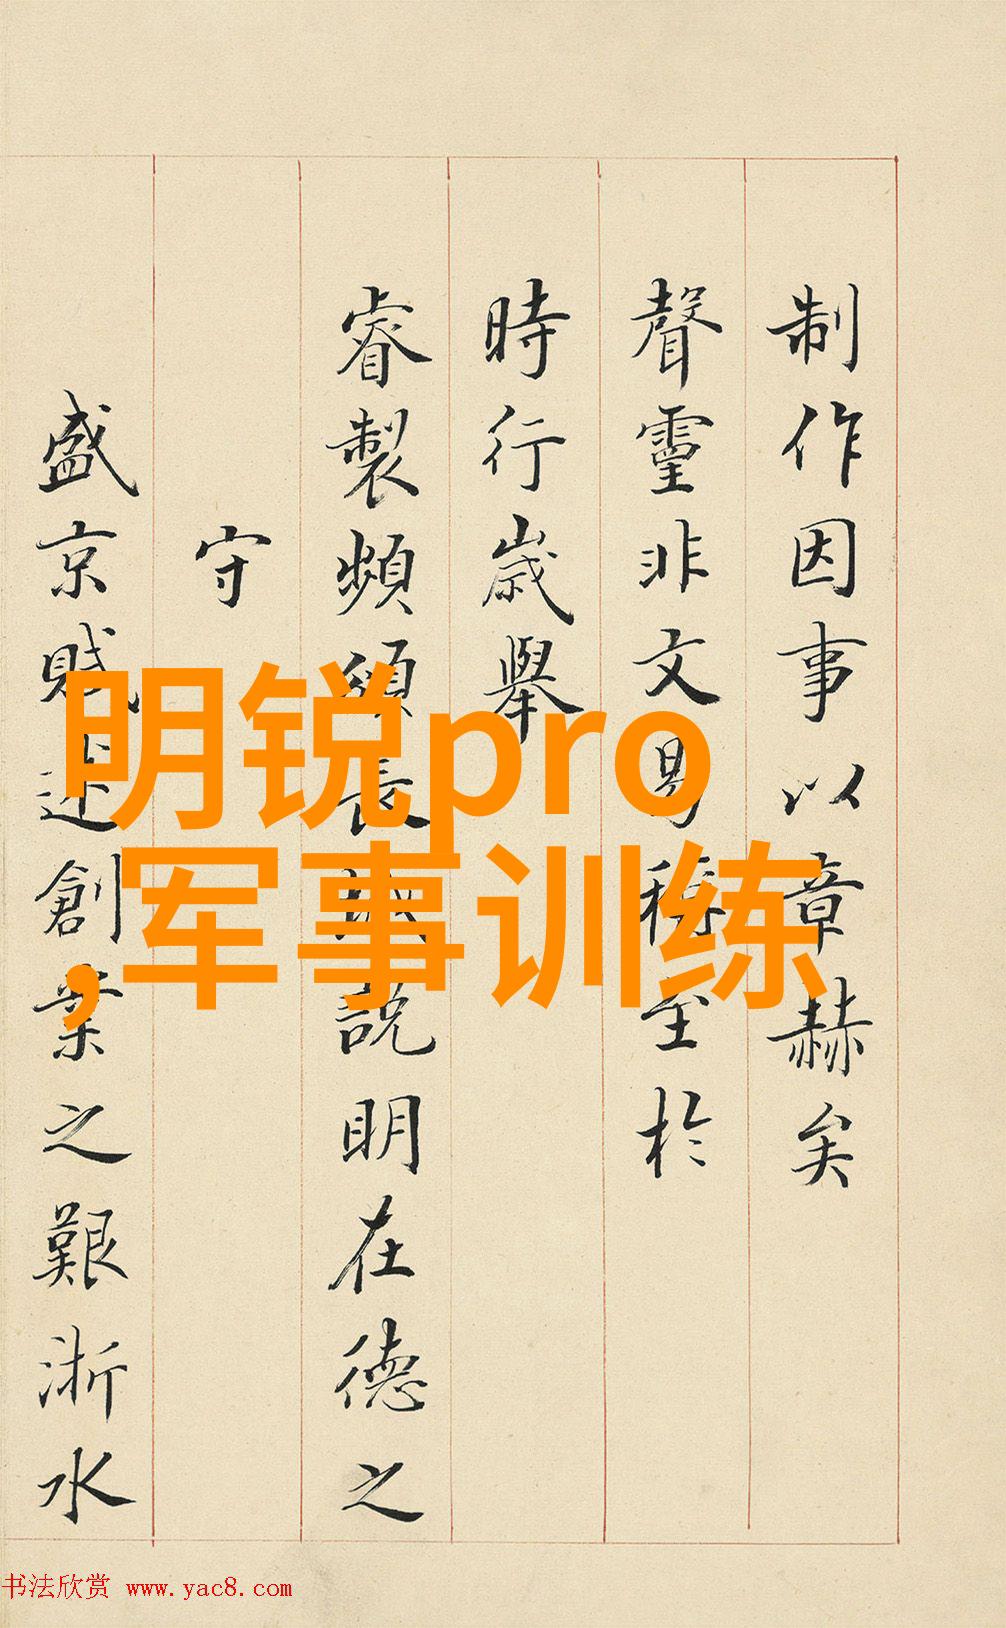 制作因事以章赫矣
聲靈非文曷稱至於
時行歲舉
睿製頻頒長城說明在德之
守
盛京賦述創業之艱浙水
明锐pro
,军事训练
书法欣赏 www.yac8.com